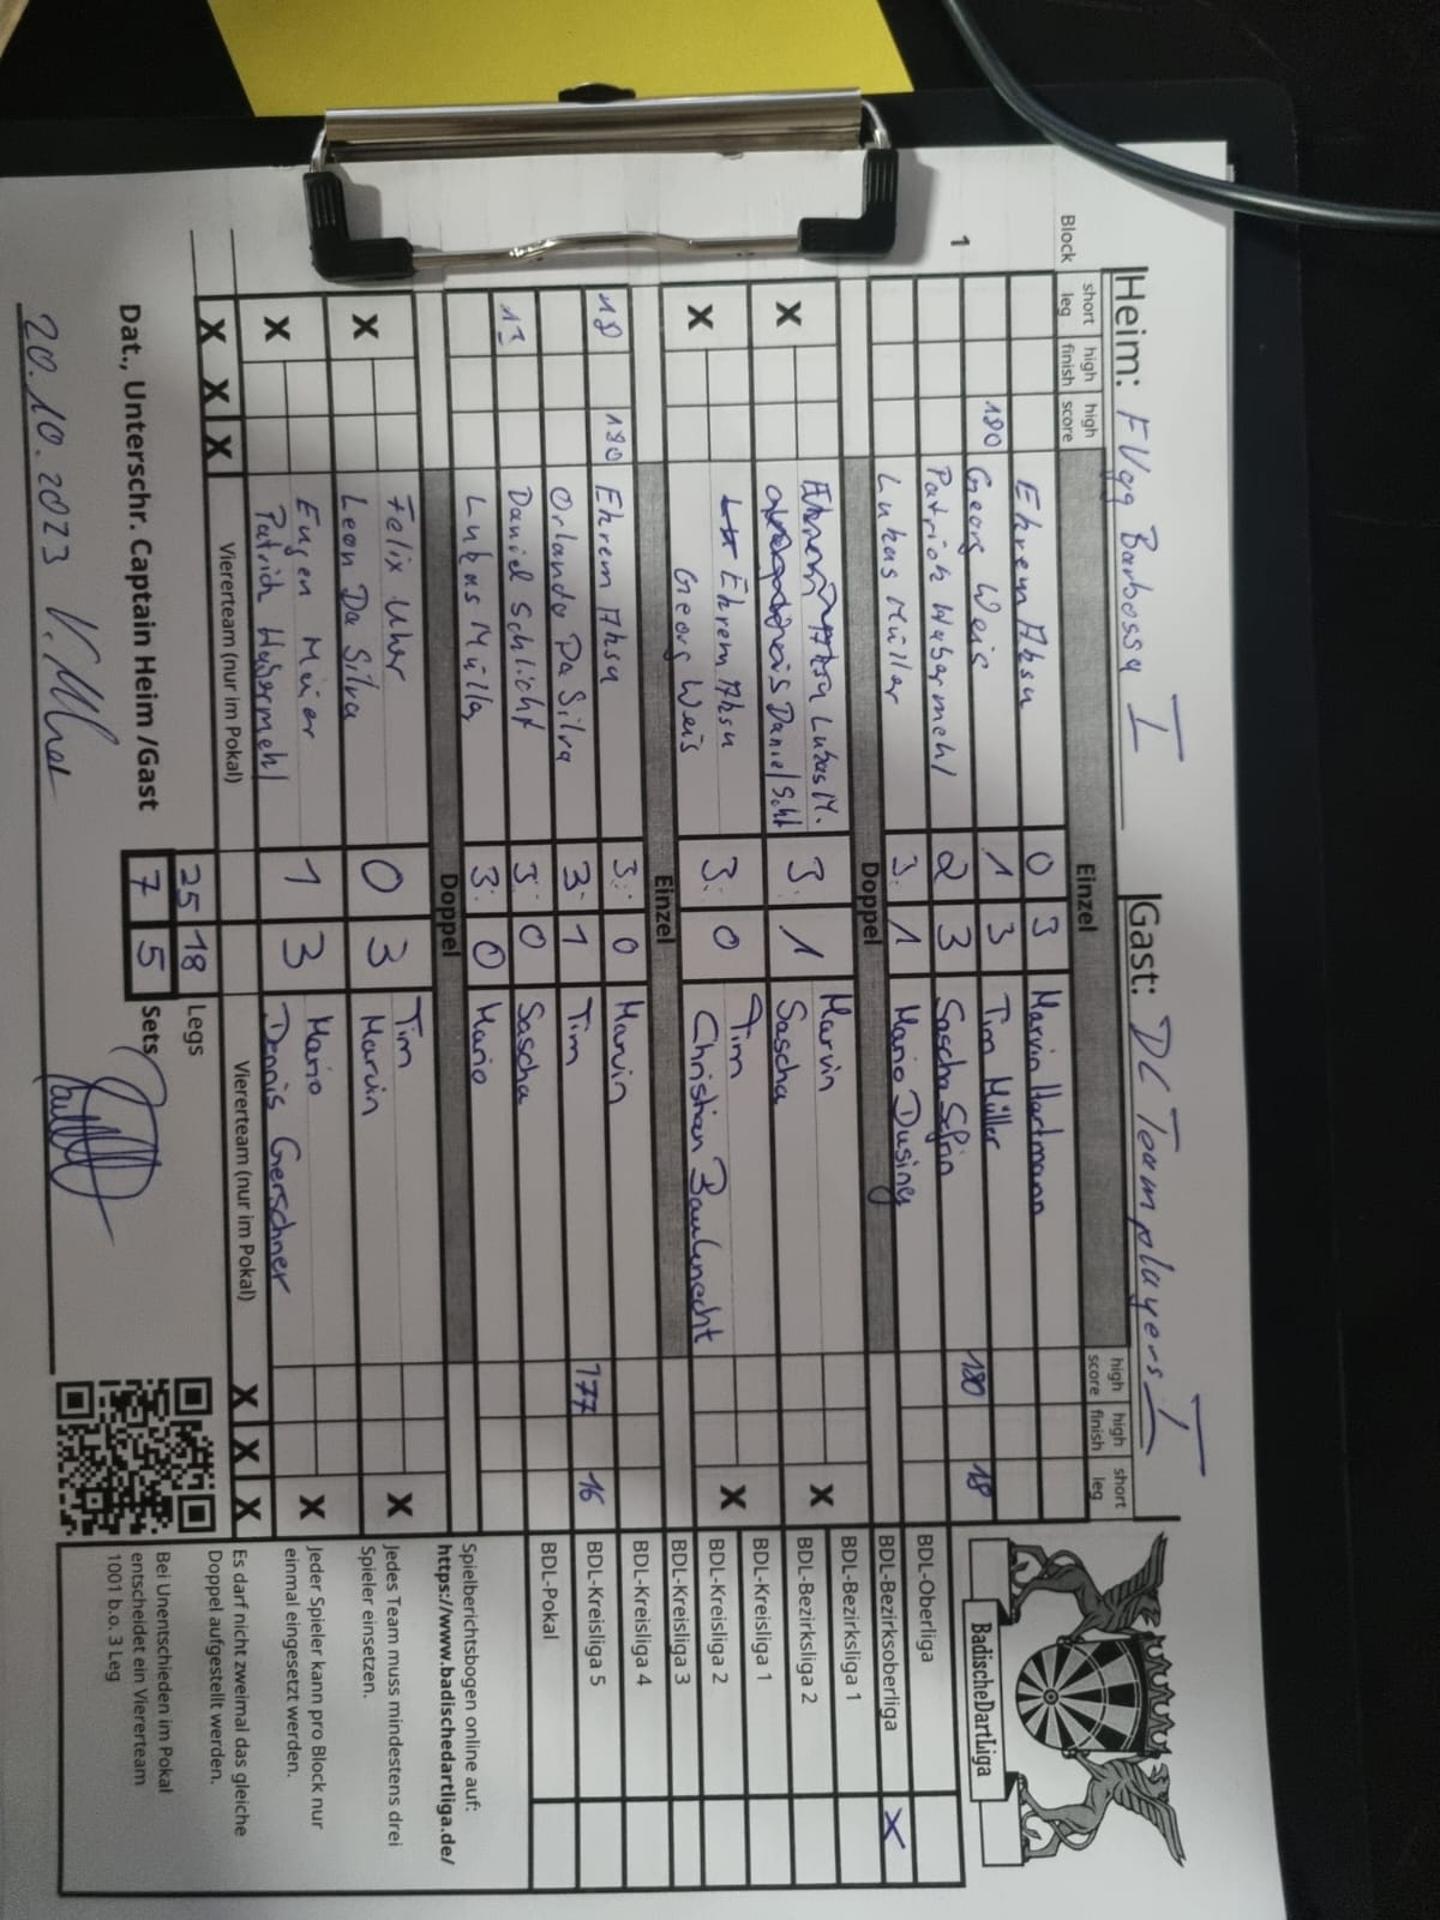 Heim: FVgg Barbossa I Gast: DC Teamplayers I
Block short leg high finish high score Einzel high score high finish short leg
1
Ehrem Ahsu 0 3 Marvin Hartmann
180 Georg Weis 1 3 Tim Müller 180 18
Patrick Habermehl 2 3 Sascha
Lukas Müller 3: 1 Mario
Doppel
X Lukas M. 3: 1 Marvin X
Daniel Schl Sascha
X Ehrem Ahsu 3: 0 Tim X
Georg Weis Christian Bauknecht
Einzel
18 180 Ehrem Ahsu 3: 0 Marvin
Orlando Da Silva 3: 1 Tim 177 16
17 Daniel Schlicht 3: 0 Sascha
Lukas Müller 3: 0 Mario
Doppel
X Felix Uhler 0 3 Tim X
Leon Da Silva Marvin
X Eugen Maier 1 3 Mario X
Patrick Habermehl Dennis Gerschner
X X X Viererteam (nur im Pokal) Viererteam (nur im Pokal) X X X
25 18 Legs
Dat., Unterschr. Captain Heim /Gast 7 5 Sets
20.10.2023
BadischeDartLiga
BDL-Oberliga
BDL-Bezirksoberliga X
BDL-Bezirksliga 1
BDL-Bezirksliga 2
BDL-Kreisliga 1
BDL-Kreisliga 2
BDL-Kreisliga 3
BDL-Kreisliga 4
BDL-Kreisliga 5
BDL-Pokal
Spielberichtsbogen online auf:
https://www.badischedartliga.de/
Jedes Team muss mindestens drei
Spieler einsetzen.
Jeder Spieler kann pro Block nur
einmal eingesetzt werden.
Es darf nicht zweimal das gleiche
Doppel aufgestellt werden.
Bei Unentschieden im Pokal
entscheidet ein Viererteam
1001 b.o. 3 Leg